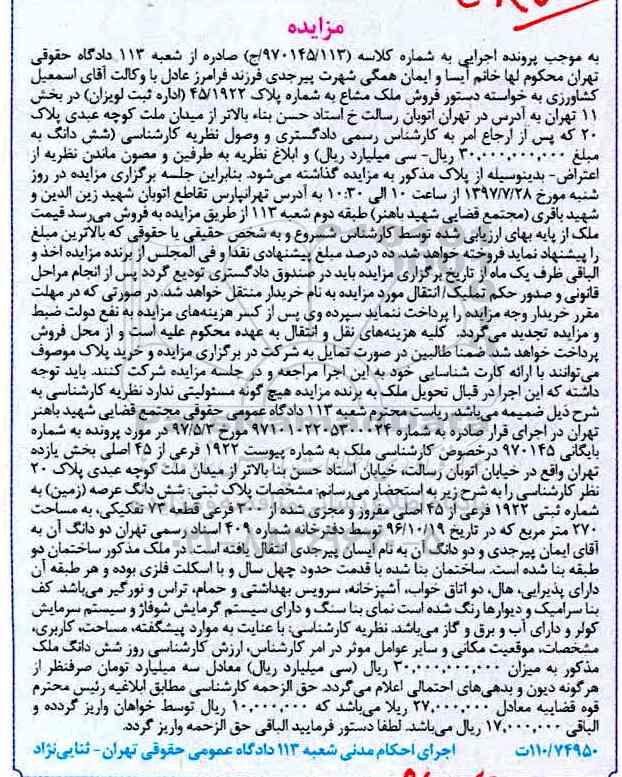 مزایده
به موجب پرونده اجرایی به شماره کلاسه (۹۷۰۱۴۵/۱۱۳/ج) صادره از شعبه ۱۱۳ دادگاه حقوقی
تهران محکوم لها خانم آیسا و ایمان همگی شهرت پیرجدی فرزند فرامرز عادل با وکالت آقای اسمعیل
کشاورزی به خواسته دستور فروش ملک مشاع به شماره پلاک ۴۵/۱۹۲۲ (اداره ثبت لویزان) در بخش
۱۱ تهران به آدرس در تهران اتوبان رسالت خ استاد حسن بناء بالاتر از میدان ملت کوچه عبدی پلاک
۲۰ که پس از ارجاع امر به کارشناس رسمی دادگستری و وصول نظریه کارشناسی (شش دانگ به
مبلغ ۳۰,۰۰۰,۰۰۰,۰۰۰ ریال- سی میلیارد ریال) و ابلاغ نظریه به طرفین و مصون ماندن نظریه از
اعتراض- بدینوسیله از پلاک مذکور به مزایده گذاشته می‌شود. بنابراین جلسه برگزاری مزایده در روز
شنبه مورخ ۱۳۹۷/۷/۲۸ از ساعت ۱۰ الی ۱۰:۳۰ به آدرس تهرانپارس تقاطع اتوبان شهید زین الدین و
شهید باقری (مجتمع قضایی شهید باهنر) طبقه دوم شعبه ۱۱۳ از طریق مزایده به فروش می‌رسد قیمت
ملک از پایه بهای ارزیابی شده توسط کارشناس شروع و به شخص حقیقی یا حقوقی که بالاترین مبلغ
را پیشنهاد نماید فروخته خواهد شد. ده درصد مبلغ پیشنهادی نقدا و فی المجلس از برنده مزایده اخذ و
الباقی ظرف یک ماه از تاریخ برگزاری مزایده باید در صندوق دادگستری تودیع گردد پس از انجام مراحل
قانونی و صدور حکم تملیک/ انتقال مورد مزایده به نام خریدار منتقل خواهد شد. در صورتی که در مهلت
مقرر خریدار وجه مزایده را پرداخت ننماید سپرده وی پس از کسر هزینه‌های مزایده به نفع دولت ضبط
و مزایده تجدید می‌گردد. کلیه هزینه‌های نقل و انتقال به عهده محکوم علیه است و از محل فروش
پرداخت خواهد شد. ضمنا طالبین در صورت تمایل به شرکت در برگزاری مزایده و خرید پلاک موصوف
می‌توانند با ارائه کارت شناسایی خود به این اجرا مراجعه و در جلسه مزایده شرکت کنند. باید توجه
داشته که این اجرا در قبال تحویل ملک به برنده مزایده هیچ گونه مسئولیتی ندارد نظریه کارشناسی به
شرح ذیل ضمیمه می‌باشد. ریاست محترم شعبه ۱۱۳ دادگاه عمومی حقوقی مجتمع قضایی شهید باهنر
تهران در اجرای قرار صادره به شماره مورخ ۹۷/۵/۲ در مورد پرونده به شماره
بایگانی ۹۷۰۱۴۵ درخصوص کارشناسی ملک به شماره پیوست ۱۹۲۲ فرعی از ۴۵ اصلی بخش یازده
تهران واقع در خیابان اتوبان رسالت، خیابان استاد حسن بنا بالاتر از میدان ملت کوچه عبدی پلاک ۲۰
نظر کارشناسی را به شرح زیر به استحضار می‌رسانم: مشخصات پلاک ثبتی: شش دانگ عرصه (زمین) به
شماره ثبتی ۱۹۲۲ فرعی از ۴۵ اصلی مفروز و مجزی شده از فرعی قطعه ۷۳ تفکیکی، به مساحت
۲۷۰ متر مربع که در تاریخ ۹۶/۱۰/۱۹ توسط دفترخانه شماره ۴۰۹ اسناد رسمی تهران دو دانگ آن به
آقای ایمان پیرجدی و دو دانگ آن به نام آیسان پیرجدی انتقال یافته است. در ملک مذکور ساختمان دو
طبقه بنا شده است. ساختمان بنا شده با قدمت حدود چهل سال و با اسکلت فلزی بوده و هر طبقه آن
دارای پذیرایی، هال، دو اتاق خواب، آشپزخانه، سرویس بهداشتی و حمام، تراس و نورگیر می‌باشد. کف
بنا سرامیک و دیوارها رنگ شده است نمای بنا سنگ و دارای سیستم گرمایش شوفاژ و سیستم سرمایش
کولر و دارای آب و برق و گاز می‌باشد. نظریه کارشناسی: با عنایت به موارد پیشگفته، مساحت، کاربری،
مشخصات، موقعیت مکانی و سایر عوامل موثر در امر کارشناس، ارزش کارشناسی روز شش دانگ ملک
مذکور به میزان ۳۰,۰۰۰,۰۰۰,۰۰۰ ریال (سی میلیارد ریال) معادل سه میلیارد تومان صرفنظر از
هرگونه دیون و بدهی‌های احتمالی اعلام می‌گردد. حق الزحمه کارشناسی مطابق ابلاغیه رئیس محترم
قوه قضاییه معادل ۲۷,۰۰۰,۰۰۰ ریلا می‌باشد که ۱۰,۰۰۰,۰۰۰ ریال توسط خواهان واریز گردده و
الباقی ۱۷,۰۰۰,۰۰۰ ریال می‌باشد. لطفا دستور فرمایید الباقی حق الزحمه واریز گردد.
۱۱۰/۷۴۹۵۰ت اجرای احکام مدنی شعبه ۱۱۳ دادگاه عمومی حقوقی تهران- ثنایی‌نژاد